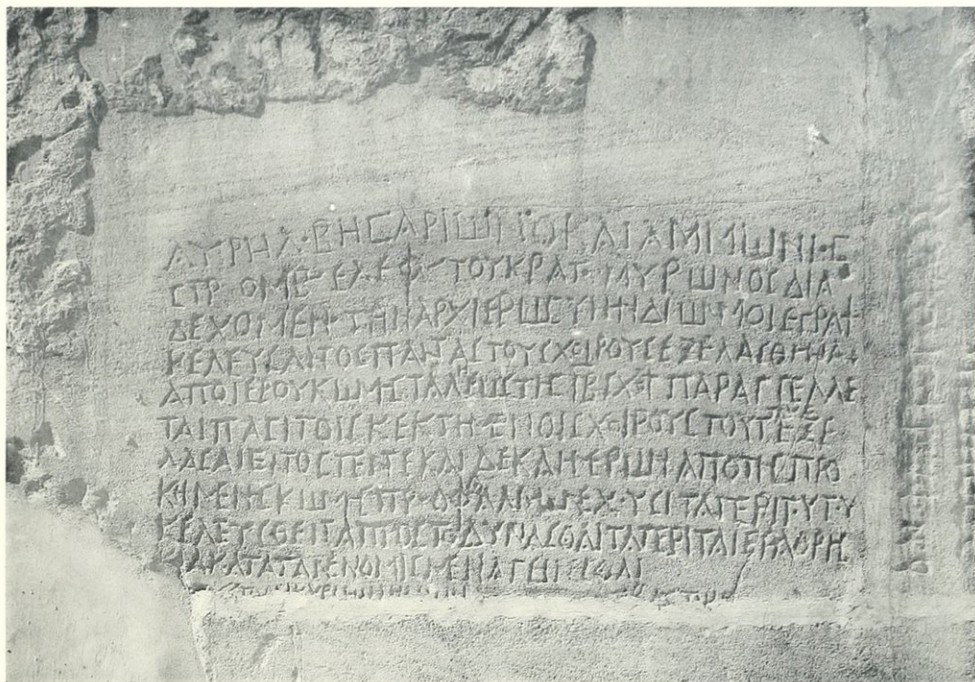 ΑΥΡΗΛ·ΒΗСΑΡΙШΝ ΟΚΑΙΑΜΜШΝΙ·С
СΤΡ ΟΜΒ ΕΛΕΦ ΤΟΥΚΡΑΤ ΜΥΡШΝΟСΔΙΑ
ΔΕΧΟΜΕΝ ΤΗΝΑΡΧΙΕΡШСΥΝΗΝΔΙШΝΜΟΙΕΓΡΑΨ
ΚΕΛΕΥСΑΝΤΟСΠΑΝΤΑСΤΟΥСΧΟΙΡΟΥСΕΞΕΛΑСΘΗΝΑ
ΑΠΟΙΕΡΟΥΚШΜΗС ΤΑΛΜΕШСΤΗСΤΒ ΠΑΡΑΓΓΕΛΛΕ
ΤΑΙΠΑСΙΤΟΙСΚΕΚΤΗΜΕΝΟΙСΧΟΙΡΟΥСΤΟΥΤΟΥСΕΞΕ
ΛΑСΑΙΕΝΤΟСΠΕΝΤΕΚΑΙΔΕΚΑΗΜΕΡШΝΑΠΟΤΗСΠΡΟ
ΚΗΜΕΝΗСΚШΜΗСΠΡ ΟΦΘΑΛΜШΝΕΧΟΥСΙΤΑΠΕΡΙΤΟΥΤΟΥ
ΚΕΛΕΥСΘΕΝΤΑΠΡΟСΤΟΔΥΝΑСΘΑΙΤΑΠΕΡΙΤΑΙΕΡΑΘΡΗС
ΚΙΑΚΑΤΑΤΑΝΕΝΟΜΙСΜΕΝΑΓΕΙΝΕСΘΑΙ